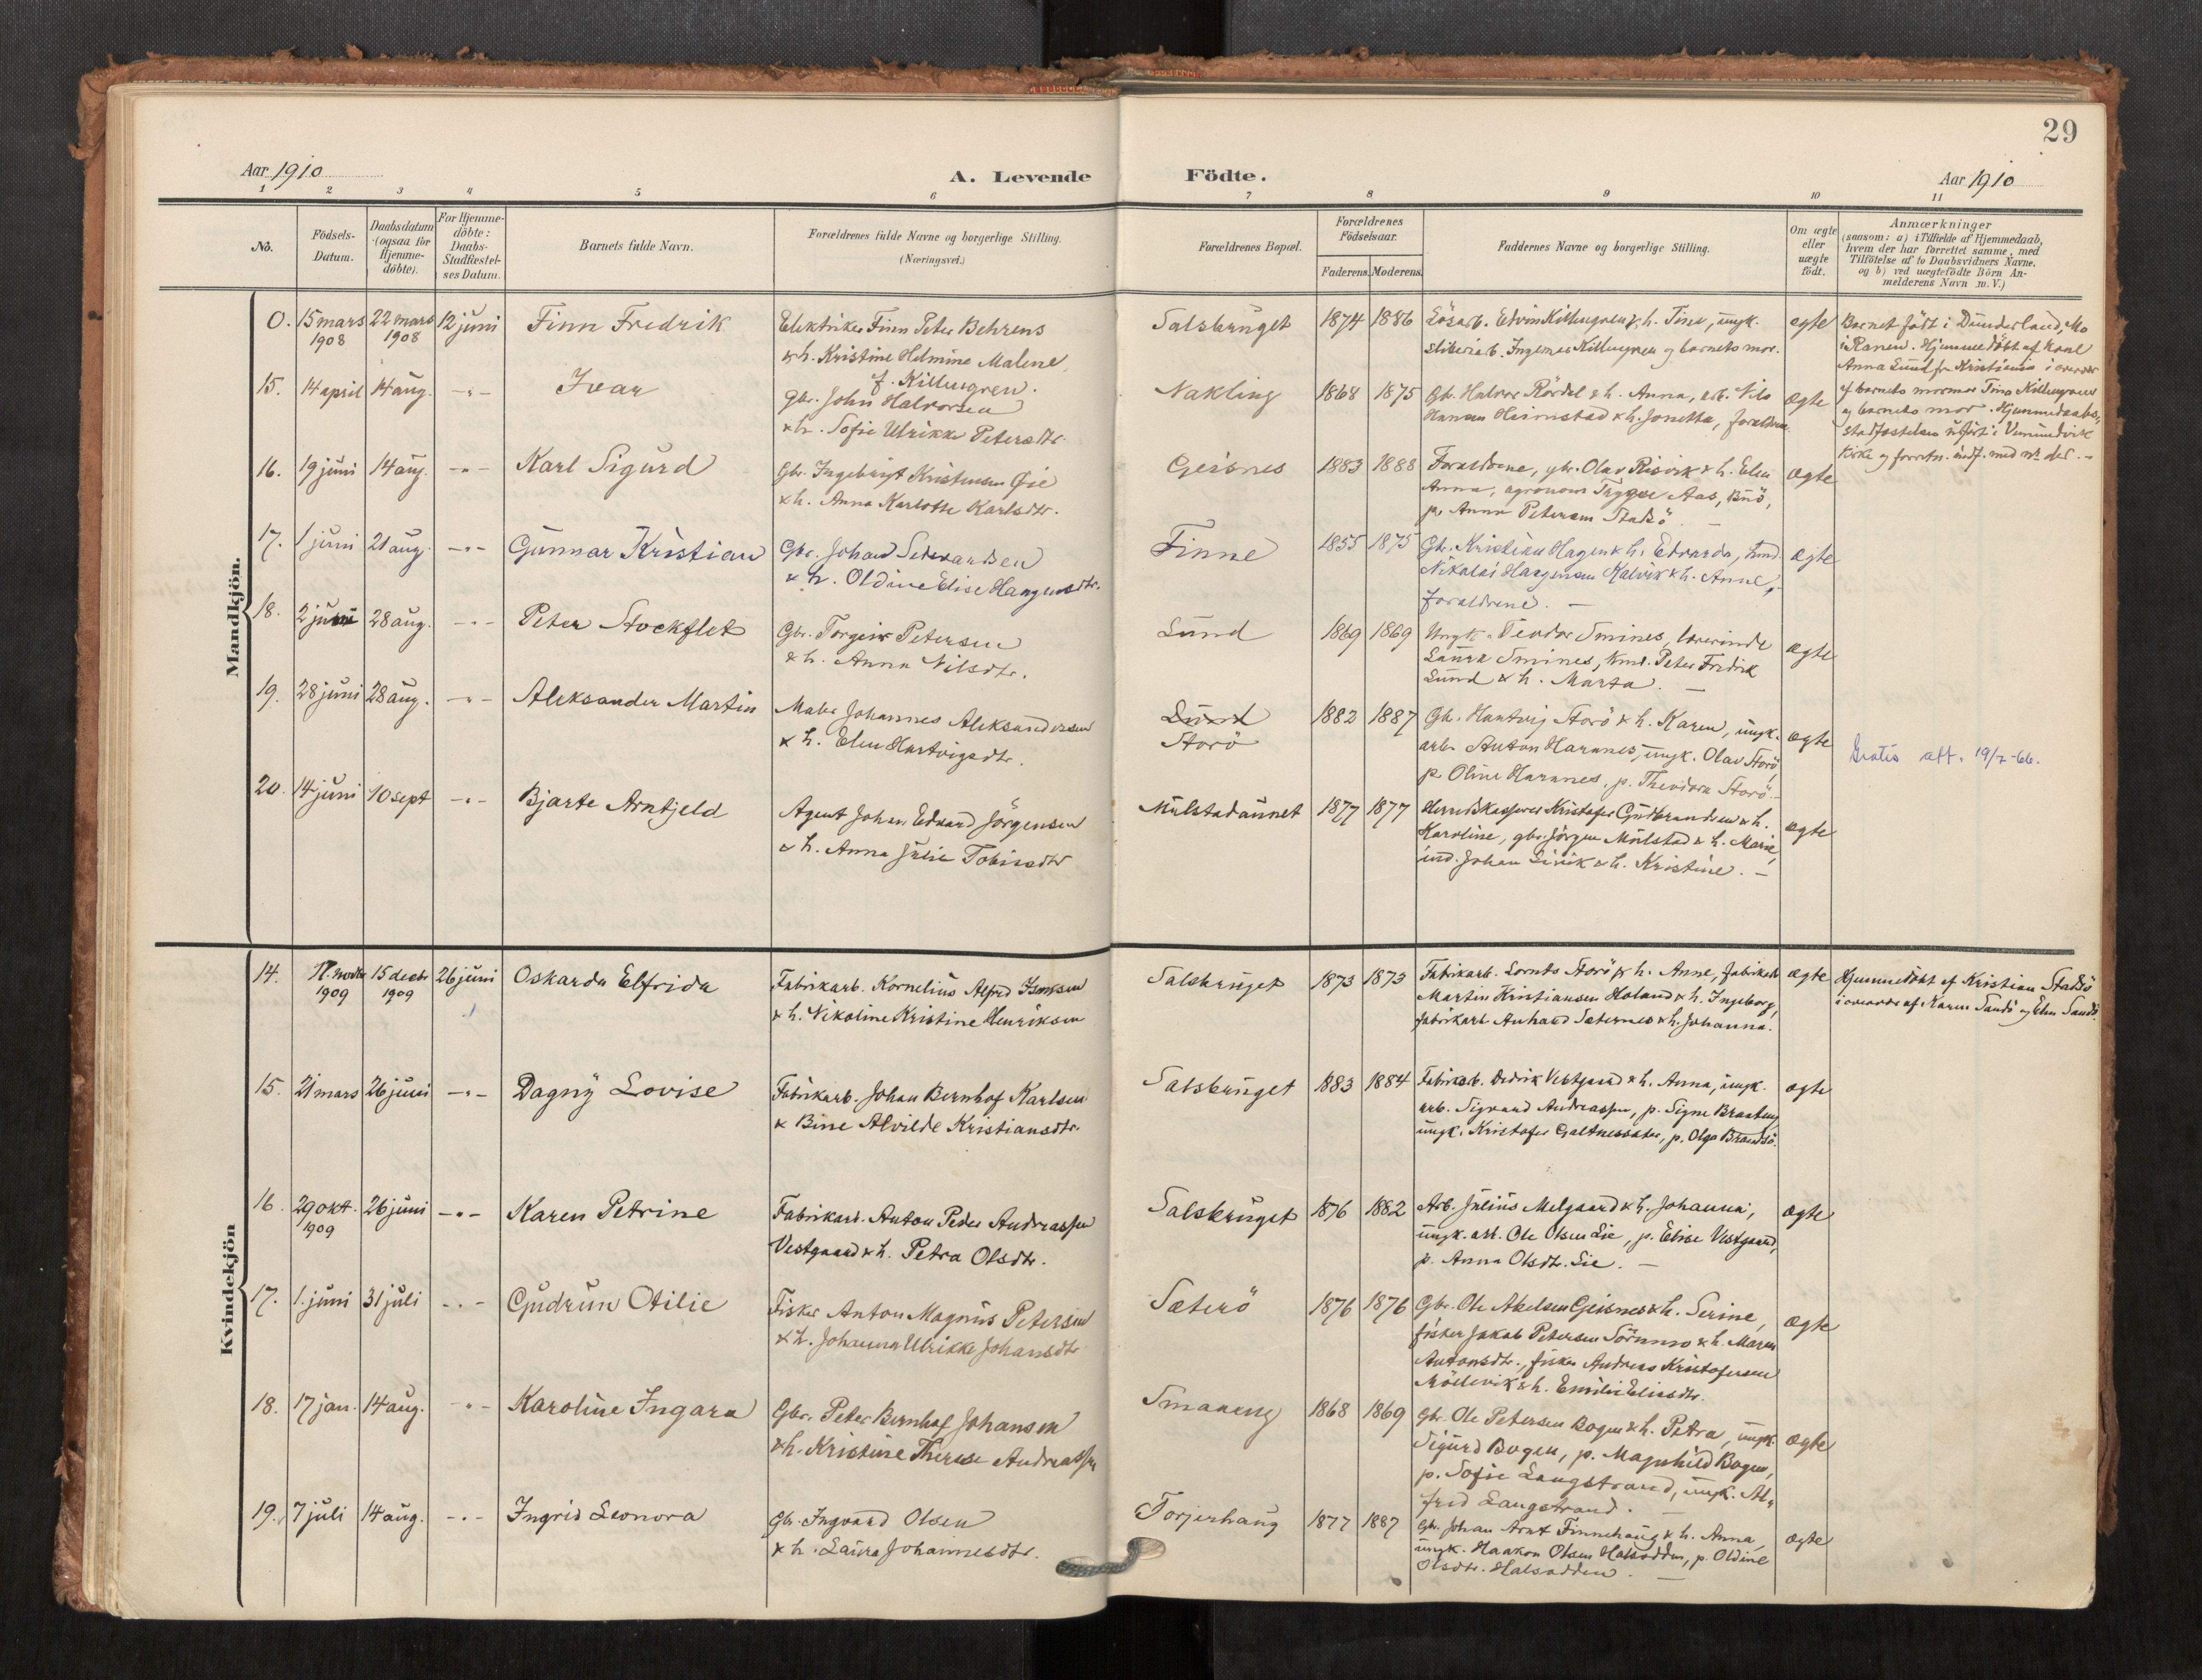 29
Aar 1910
A. Levende Födte.
Aar 1910
1 2 3 4 5 6 7 8 9 10 11
No.
Födsels-
Datum.
Daabsdatum
(ogsaa for
Hjemme-
döbte).
For Hjemme-
döbte:
Daabs-
Stadfæstel-
ses Datum.
Barnets fulde Navn.
Forældrenes fulde Navne og borgerlige Stilling.
(Næringsvei.)
Forældrenes Bopæl.
Forældrenes
Födselsaar.
Faderens. Moderens.
Faddernes Navne og borgerlige Stilling.
Om ægte
eller
uægte
födt.
Anmærkninger
(saasom: a) i Tilfælde af Hjemmedaab,
hvem der har forrettet samme, med
Tilföielse af to Daabsvidners Navne.
og b) ved uægtefödte Börn An-
melderens Navn m. V.)
Mandkjön.
0. 15 mars 1908 22 mars 1908 12 juni Finn Fredrik
Elektriker Finn Peter Behrens
& h. Kristine Helmine Malene
f. Killengren.
Salsbruget 1874 1886
Lösarb. Edvin Killengren & h. Tine, ungk.
sliberiarb. Ingemar Killengren og barnets mor.
egte
Barnet født i Dunderland, Mo
i Ranen. Hjemmedöbt af
Anna Lund fra Kristiania i overvær
af barnets mormor Tine Killengren
og barnets mor. Hjemmedaabs-
stadfæstelsen utført i Vemundvik
Kirke
15. 14 april 14 aug. -"- Ivar
Gbr. John Halvorsen
& h. Sofie Ulrikke Petersdtr.
Nakling 1868 1875
Gbr. Halvor Rördal & h. Anna, arb. Nils
Hansen Heimstad & h. Jonetta, forældrene.
Ægte
16. 19 juni 14 aug. -"- Karl Sigurd
Gbr. Ingebrigt Kristensen Øie
& h. Anna Karlotte Karlsdtr.
Geisnes 1883 1888
Forældrene, gbr. Olav Risvik & h. Elen
Anna, agronom Trygve Aas, Buö,
p. Anna Petersen Stadsö. -
Ægte
17. 1 juni 21 aug. -"- Gunnar Kristian
Gbr. Johan Sevardsen
& h. Oldine Elise Haagensdtr.
Finne 1855 1875
Gbr. Kristian Hagen & h. Edvarda, kmd.
Nikolai Haagensen Kalvik & h. Anne,
forældrene. -
Ægte
18. 2 juni 28 aug. -"- Peter Stockflet
Gbr. Torgeir Petersen
& h. Anna Nilsdtr.
Lund 1869 1869
Ungk. Teodor Smines, lærerinde
Laura Smines, kmd. Peter Fredrik
Lund & h. Marta. -
Ægte
19. 28 juni 28 aug. -"- Aleksander Martin
Maler Johannes Aleksandersen
& h. Elen Hartvigsdtr.
Lund
Storö
1882 1887
Gbr. Hartvig Storö & h. Karen, ungk.
arb. Anton Haranes, ungk. Olav Storö,
p. Oline Haranes, p. Theodora Storö. -
Ægte
Gratis att. 19/7-66.
20. 14 juni 10 sept -"- Bjarte Arntfjeld
Agent Johan Edvard Jörgensen
& h. Anna Julie Tobiasdtr
Mülstadaunet 1877 1877
Herredskasserer Kristofer Gudbrandsen & h.
Karoline, gbr. Jörgen Mülstad & h. Marie,
ind. Johan & h. Kristine. -
Ægte
Kvindekjön
14. 17. novbr 1909 15 decbr 1909 26 juni Oskarda Elfrida
Fabrikarb. Kornelius Alfred Isaksen
& h. Nikoline Kristine Henriksen
Salsbruget 1873 1873
Fabrikarb. Lornts Storö & h. Anne, fabrikarb.
Martin Kristiansen Holand & h. Ingeborg,
fabrikarb. Anhard Sæternes & h. Johanna.
ægte
Hjemmedöbt af Kristian Stadsö
i overvær af Karen Sandö og Elen Sandö.
15. 21 mars 26 juni -"- Dagny Lovise
Fabrikarb. Johan Bernhof Karlsen
& Bine Alvilde Kristiansdtr.
Salsbruget 1883 1884
Fabrikarb. Dedrik Vestgaard & h. Anna, ungk.
arb. Sigvard Andreassen, p. Signe Braaten,
ungk. Kristofer Galtnessæter, p. Olga Brandsö.
ægte
16. 29 okt. 1909 26 juni -"- Karen Petrine
Fabrikarb. Anton Peder Andreassen
Vestgaard & h. Petra Olsdtr.
Salsbruget 1876 1882
Arb. Julius Melgaard & h. Johanna,
ungk. arb. Ole Olsen Lie, p. Elise Vestgaard,
p. Anna Olsdtr. Lie. -
Ægte
17. 1. juni 31 juli -"- Gudrun Otilie
Fisker Anton Magnus Petersen
& h. Johanna Ulrikke Johansdtr
Sæterö 1876 1876
Gbr. Ole Akelsen Geisnes & h. Serine,
fisker Jakob Petersen Sörmo & h. Maren
Antonsdtr., fisker Andreas Kristofersen
Möllevik & h. Emilie Eliasdtr.
Ægte
18. 17 jan. 14 aug. -"- Karoline Ingara
Gbr. Peter Bernhof Johansen
& h. Kristine Therese Andreassen
Smaaeng 1868 1869
Gbr. Ole Petersen Bogen & h. Petra, ungk.
Sigurd Bogen, p. Magnhild Bogen,
p. Sofie Langstrand, ungk. Al-
fred Langstrand. -
Ægte
19. 7 juli 14 aug. -"- Ingrid Leonora
Gbr. Ingvard Olsen
& h. Laura Johannesdtr.
Torjerhaug 1877 1887
Gbr. Johan Arnt Finnehaug & h. Anna,
ungk. Haakon Olsen Halsodden, p. Oldine
Olsdtr. Halsodden. -
Ægte